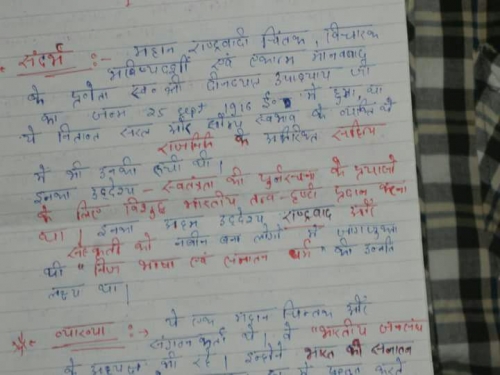 * संदर्भ :- महान राष्ट्रवादी चिंतक, विचारक
भविष्यदर्शी एवं एकात्म मानववाद
के प्रणेता स्व० श्री दीनदयाल उपाध्याय जी
का जन्म 25 सितम्बर 1916 ई० में हुआ, था
ये नितान्त सरल और सौम्य स्वभाव के व्यक्ति थे
राजनीति के अतिरिक्त साहित्य
में भी उनकी रूची थी।
इनका उद्देश्य - स्वतंत्रता की पुर्नरचना के प्रयासो
के लिए विशुद्ध भारतीय तत्व-दृष्टी प्रदान करना
था। इनका मुख्य उद्देश्य राष्ट्रवाद और
संस्कृती को नवीन बना लोगों में जागरूकता
थी "निज भाषा एवं सनातन धर्म" की उन्नति
लक्ष्य था।
* व्याख्या :-> ये एक महान चिन्तक और
संगठन कर्ता थे। वे "भारतीय जनसंघ
के अध्यक्ष भी रहे। इन्होंने भारत की सनातन